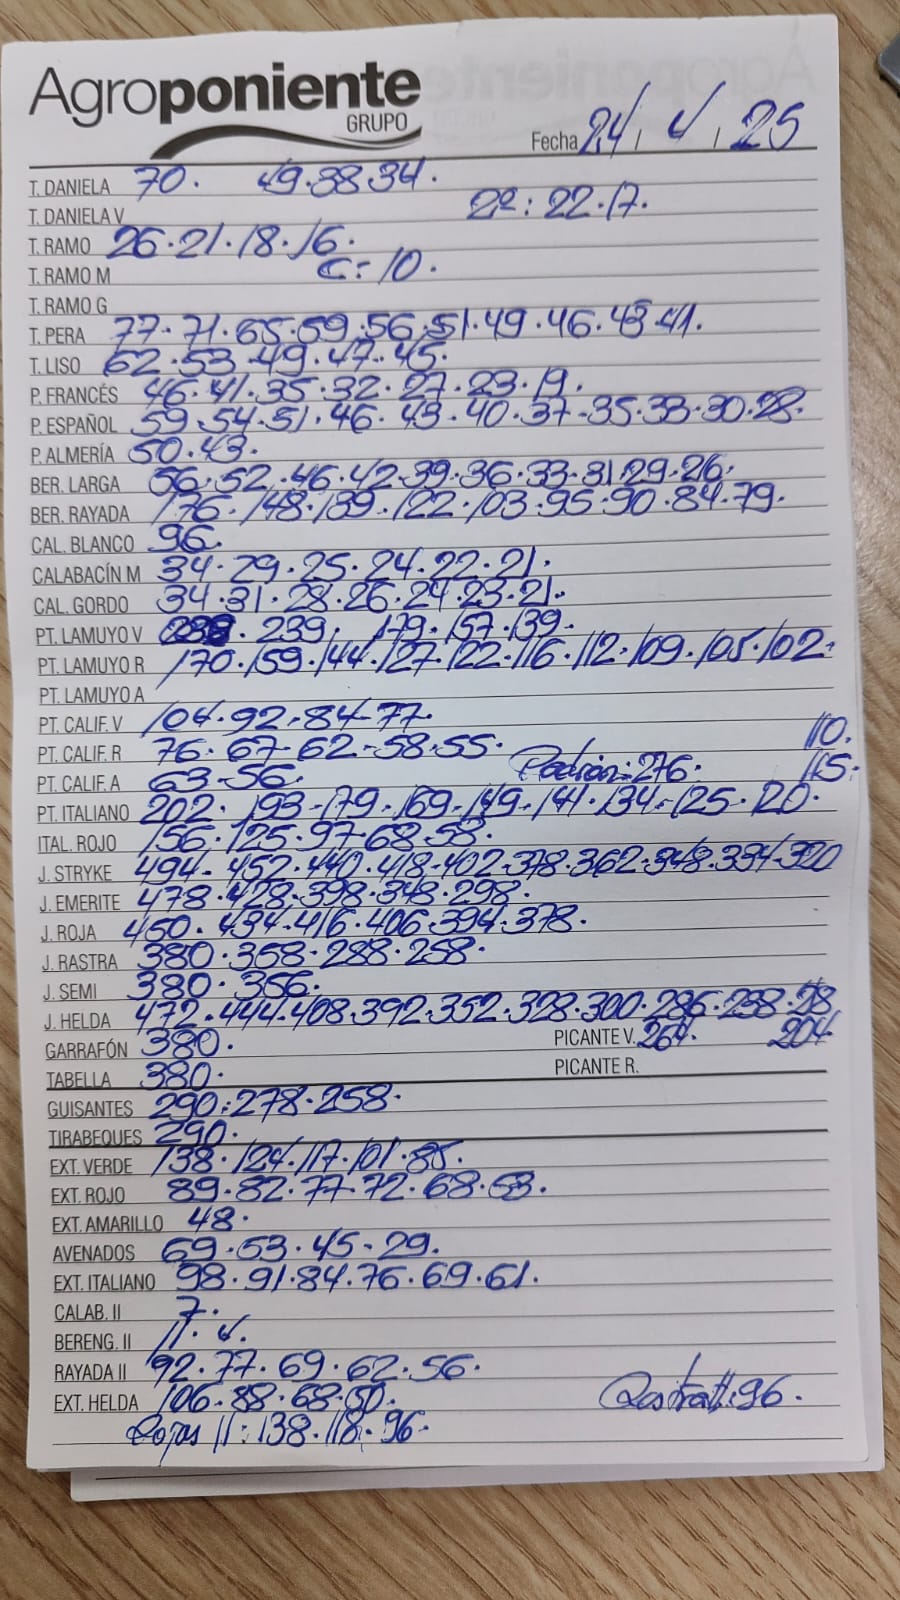 Agroponiente
GRUPO
Fecha 24 / 4 / 25
T. DANIELA 70. 49.38.34.
T. DANELA V 2ª: 22.17.
T. RAMO 26.21.18.16.
T. RAMO M C: 10.
T. RAMO G
T. PERA 77.71.65.59.56.51.49.46.43.41.
T. LISO 62.53.49.47.45.
P. FRANCÉS 46.41.35.32.27.23.19.
P. ESPAÑOL 59.54.51.46.43.40.37.35.33.30.28.
P. ALMERÍA 50.43.
BER. LARGA 56.52.46.42.39.36.33.31.29.26.
BER. RAYADA 176.148.139.122.103.95.90.84.79.
CAL. BLANCO 96.
CALABACÍN M 34.29.25.24.22.21.
CAL. GORDO 34.31.28.26.24.23.21.
PT. LAMUYO V 239. 179.157.139.
PT. LAMUYO R 170.159.144.127.122.116.112.109.105.102.
PT. LAMUYO A
PT. CALIF. V 104.92.84.77. 110.
PT. CALIF. R 76.67.62.58.55.
PT. CALIF. A 63.56. Padrón: 276. 115.
PT. ITALIANO 202.193.179.169.149.141.134.125.120.
ITAL. ROJO 156.125.97.68.58.
J. STRYKE 494.452.440.418.402.378.362.348.334.320
J. EMERITE 478.428.398.348.298.
J. ROJA 450.434.416.406.394.378.
J. RASTRA 380.358.288.258.
J. SEMI 380.356.
J. HELDA 472.444.408.392.352.328.300.286.238.
GARRAFÓN 380. PICANTE V. 264. 204
TABELLA 380. PICANTE R.
GUISANTES 290.278.258.
TIRABEQUES 290.
EXT. VERDE 138.124.117.101.85.
EXT. ROJO 89.82.77.72.68.53.
EXT. AMARILLO 48.
AVENADOS 69.53.45.29.
EXT. ITALIANO 98.91.84.76.69.61.
CALAB. II 7.
BERENG. II 11.4.
RAYADA II 92.77.69.62.56.
EXT. HELDA 106.88.68.50. Rastra II: 96.
Rojas II: 138.118.96.